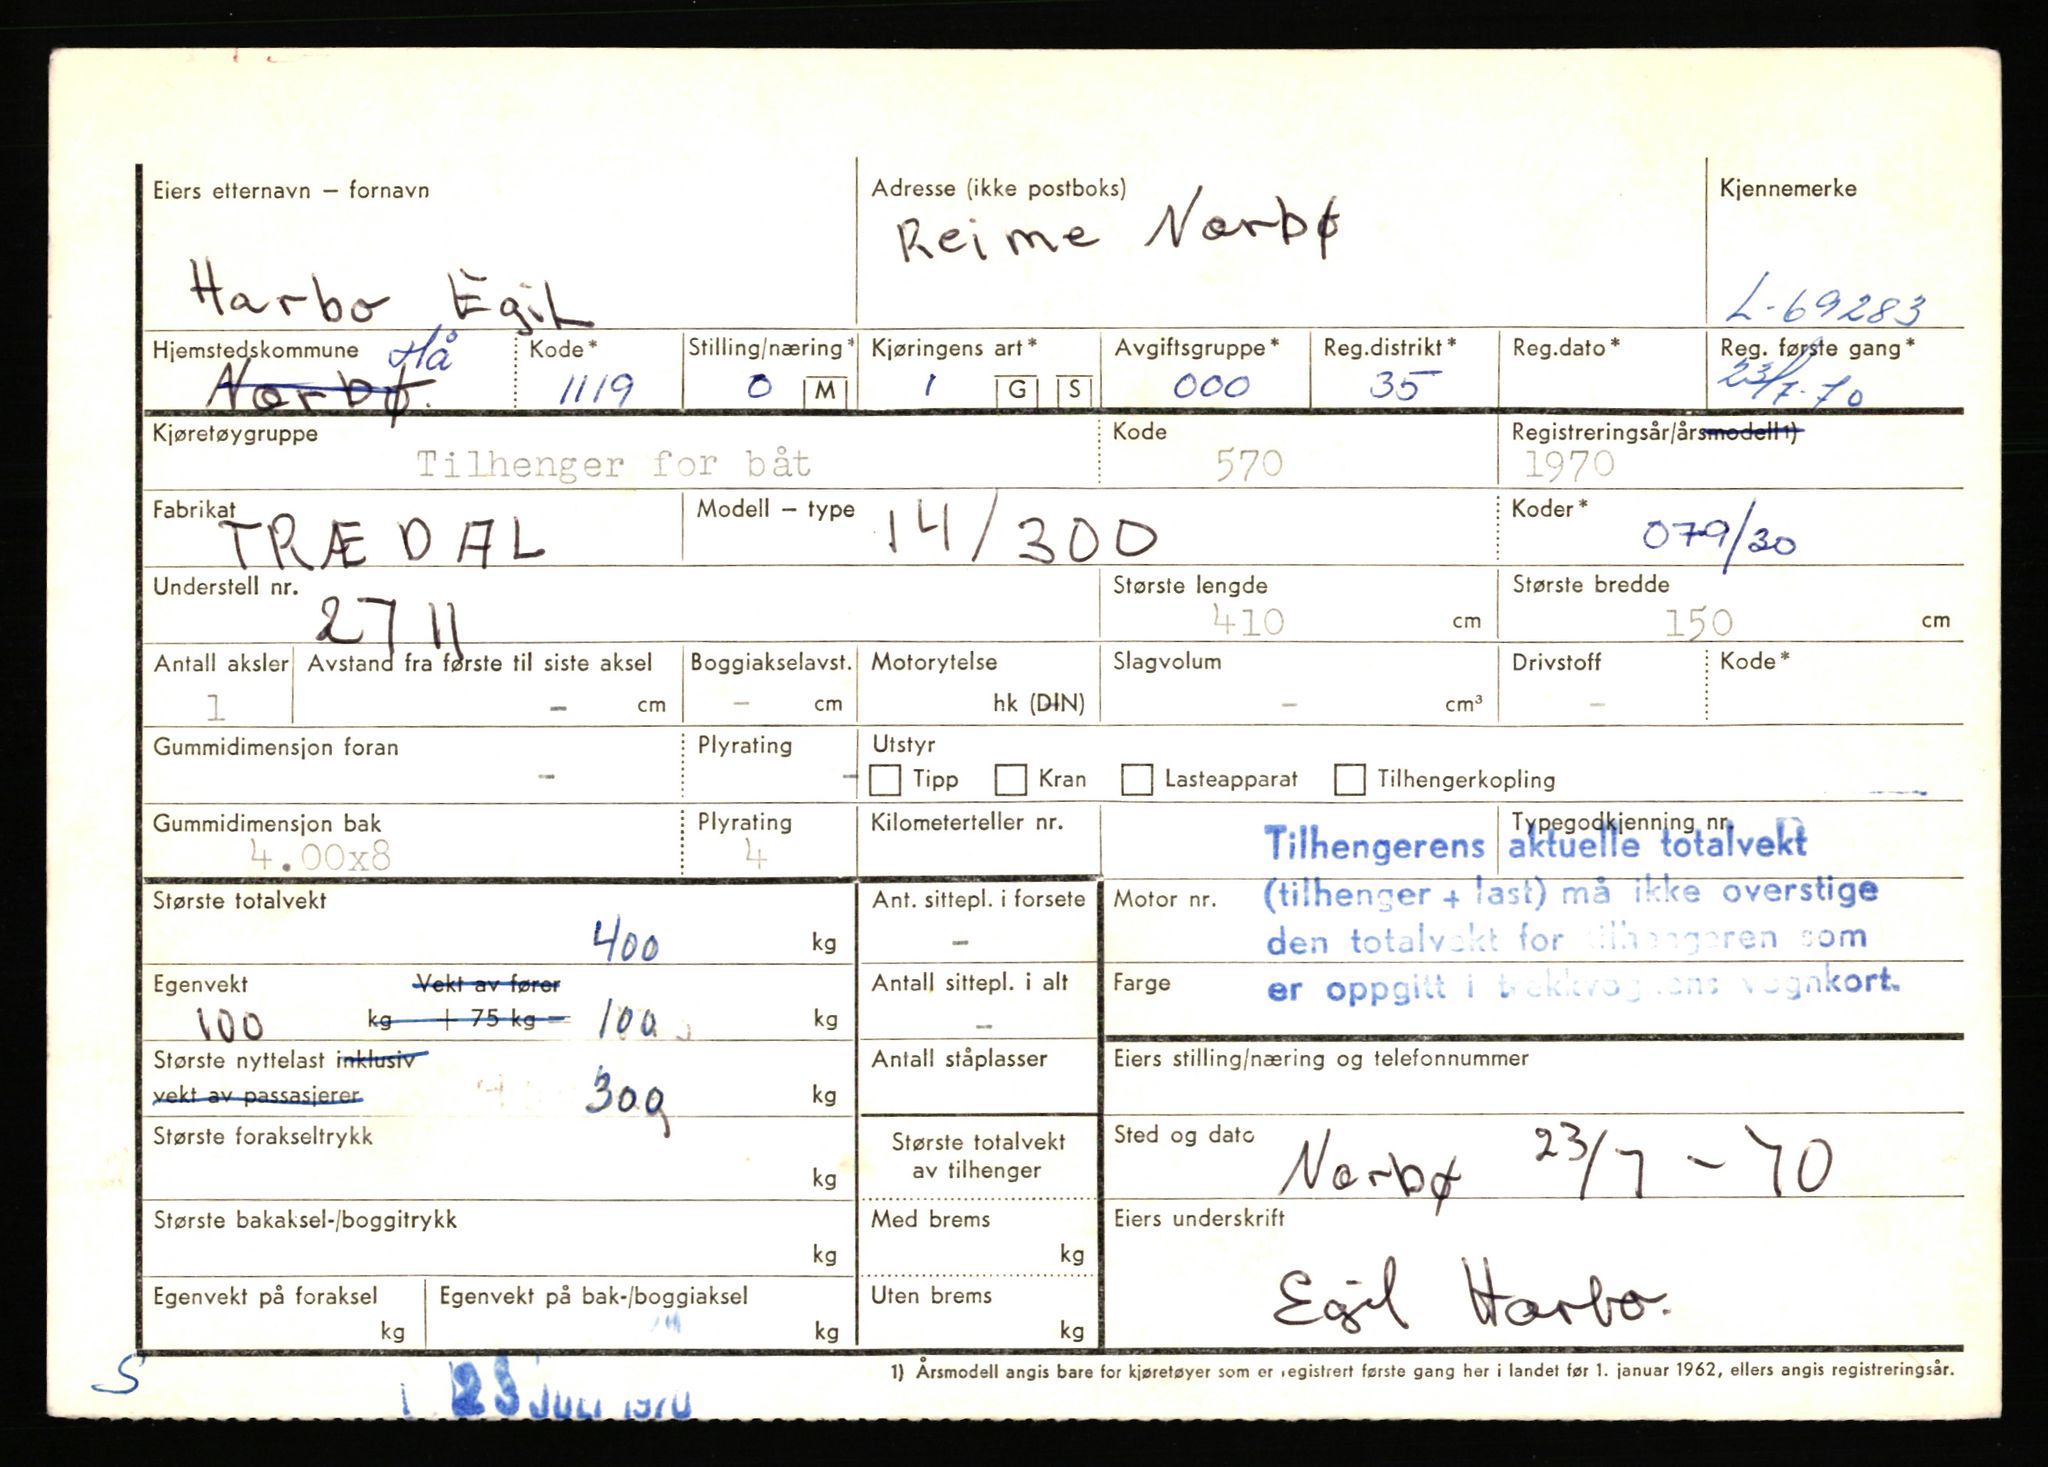 Eiers etternavn – fornavn
Harbo Egil
Adresse (ikke postboks)
Reime Nærbø
Kjennemerke
L-69283
Hjemstedskommune Hå
Nærbø.
Kode*
1119
Stilling/næring*
0 M
Kjøringens art*
1 G S
Avgiftsgruppe*
000
Reg.distrikt*
35
Reg.dato*
Reg. første gang*
23/7-70
Kjøretøygruppe
Tilhenger for båt
Kode
570
Registreringsår/årsmodell 1)
1970
Fabrikat
TRÆDAL
Modell – type
14/300
Koder*
079/30
Understell nr.
2711
Største lengde
410 cm
Største bredde
150 cm
Antall aksler
1
Avstand fra første til siste aksel
– cm
Boggiakselavst.
– cm
Motorytelse
hk (DIN)
Slagvolum
– cm³
Drivstoff
–
Kode*
Gummidimensjon foran
–
Plyrating
–
Utstyr
Tipp Kran Lasteapparat Tilhengerkopling
Gummidimensjon bak
4.00x8
Plyrating
4
Kilometerteller nr.
Typegodkjenning nr.
Tilhengerens aktuelle totalvekt
(tilhenger + last) må ikke overstige
den totalvekt for tilhengeren som
er oppgitt i trekkvognens vognkort.
Største totalvekt
400 kg
Ant. sittepl. i forsete
–
Motor nr.
Egenvekt Vekt av fører
100 kg + 75 kg = 100 kg
Antall sittepl. i alt
–
Farge
Største nyttelast inklusiv
vekt av passasjerer 300 kg
Antall ståplasser
Eiers stilling/næring og telefonnummer
Største forakseltrykk
kg
Største totalvekt
av tilhenger
Sted og dato
Nærbø 23/7 – 70
Største bakaksel-/boggitrykk
kg
Med brems
kg
Eiers underskrift
Egil Harbo.
Egenvekt på foraksel
kg
Egenvekt på bak-/boggiaksel
kg
Uten brems
kg
1) Årsmodell angis bare for kjøretøyer som er registrert første gang her i landet før 1. januar 1962, ellers angis registreringsår.
S
23 JULI 1970